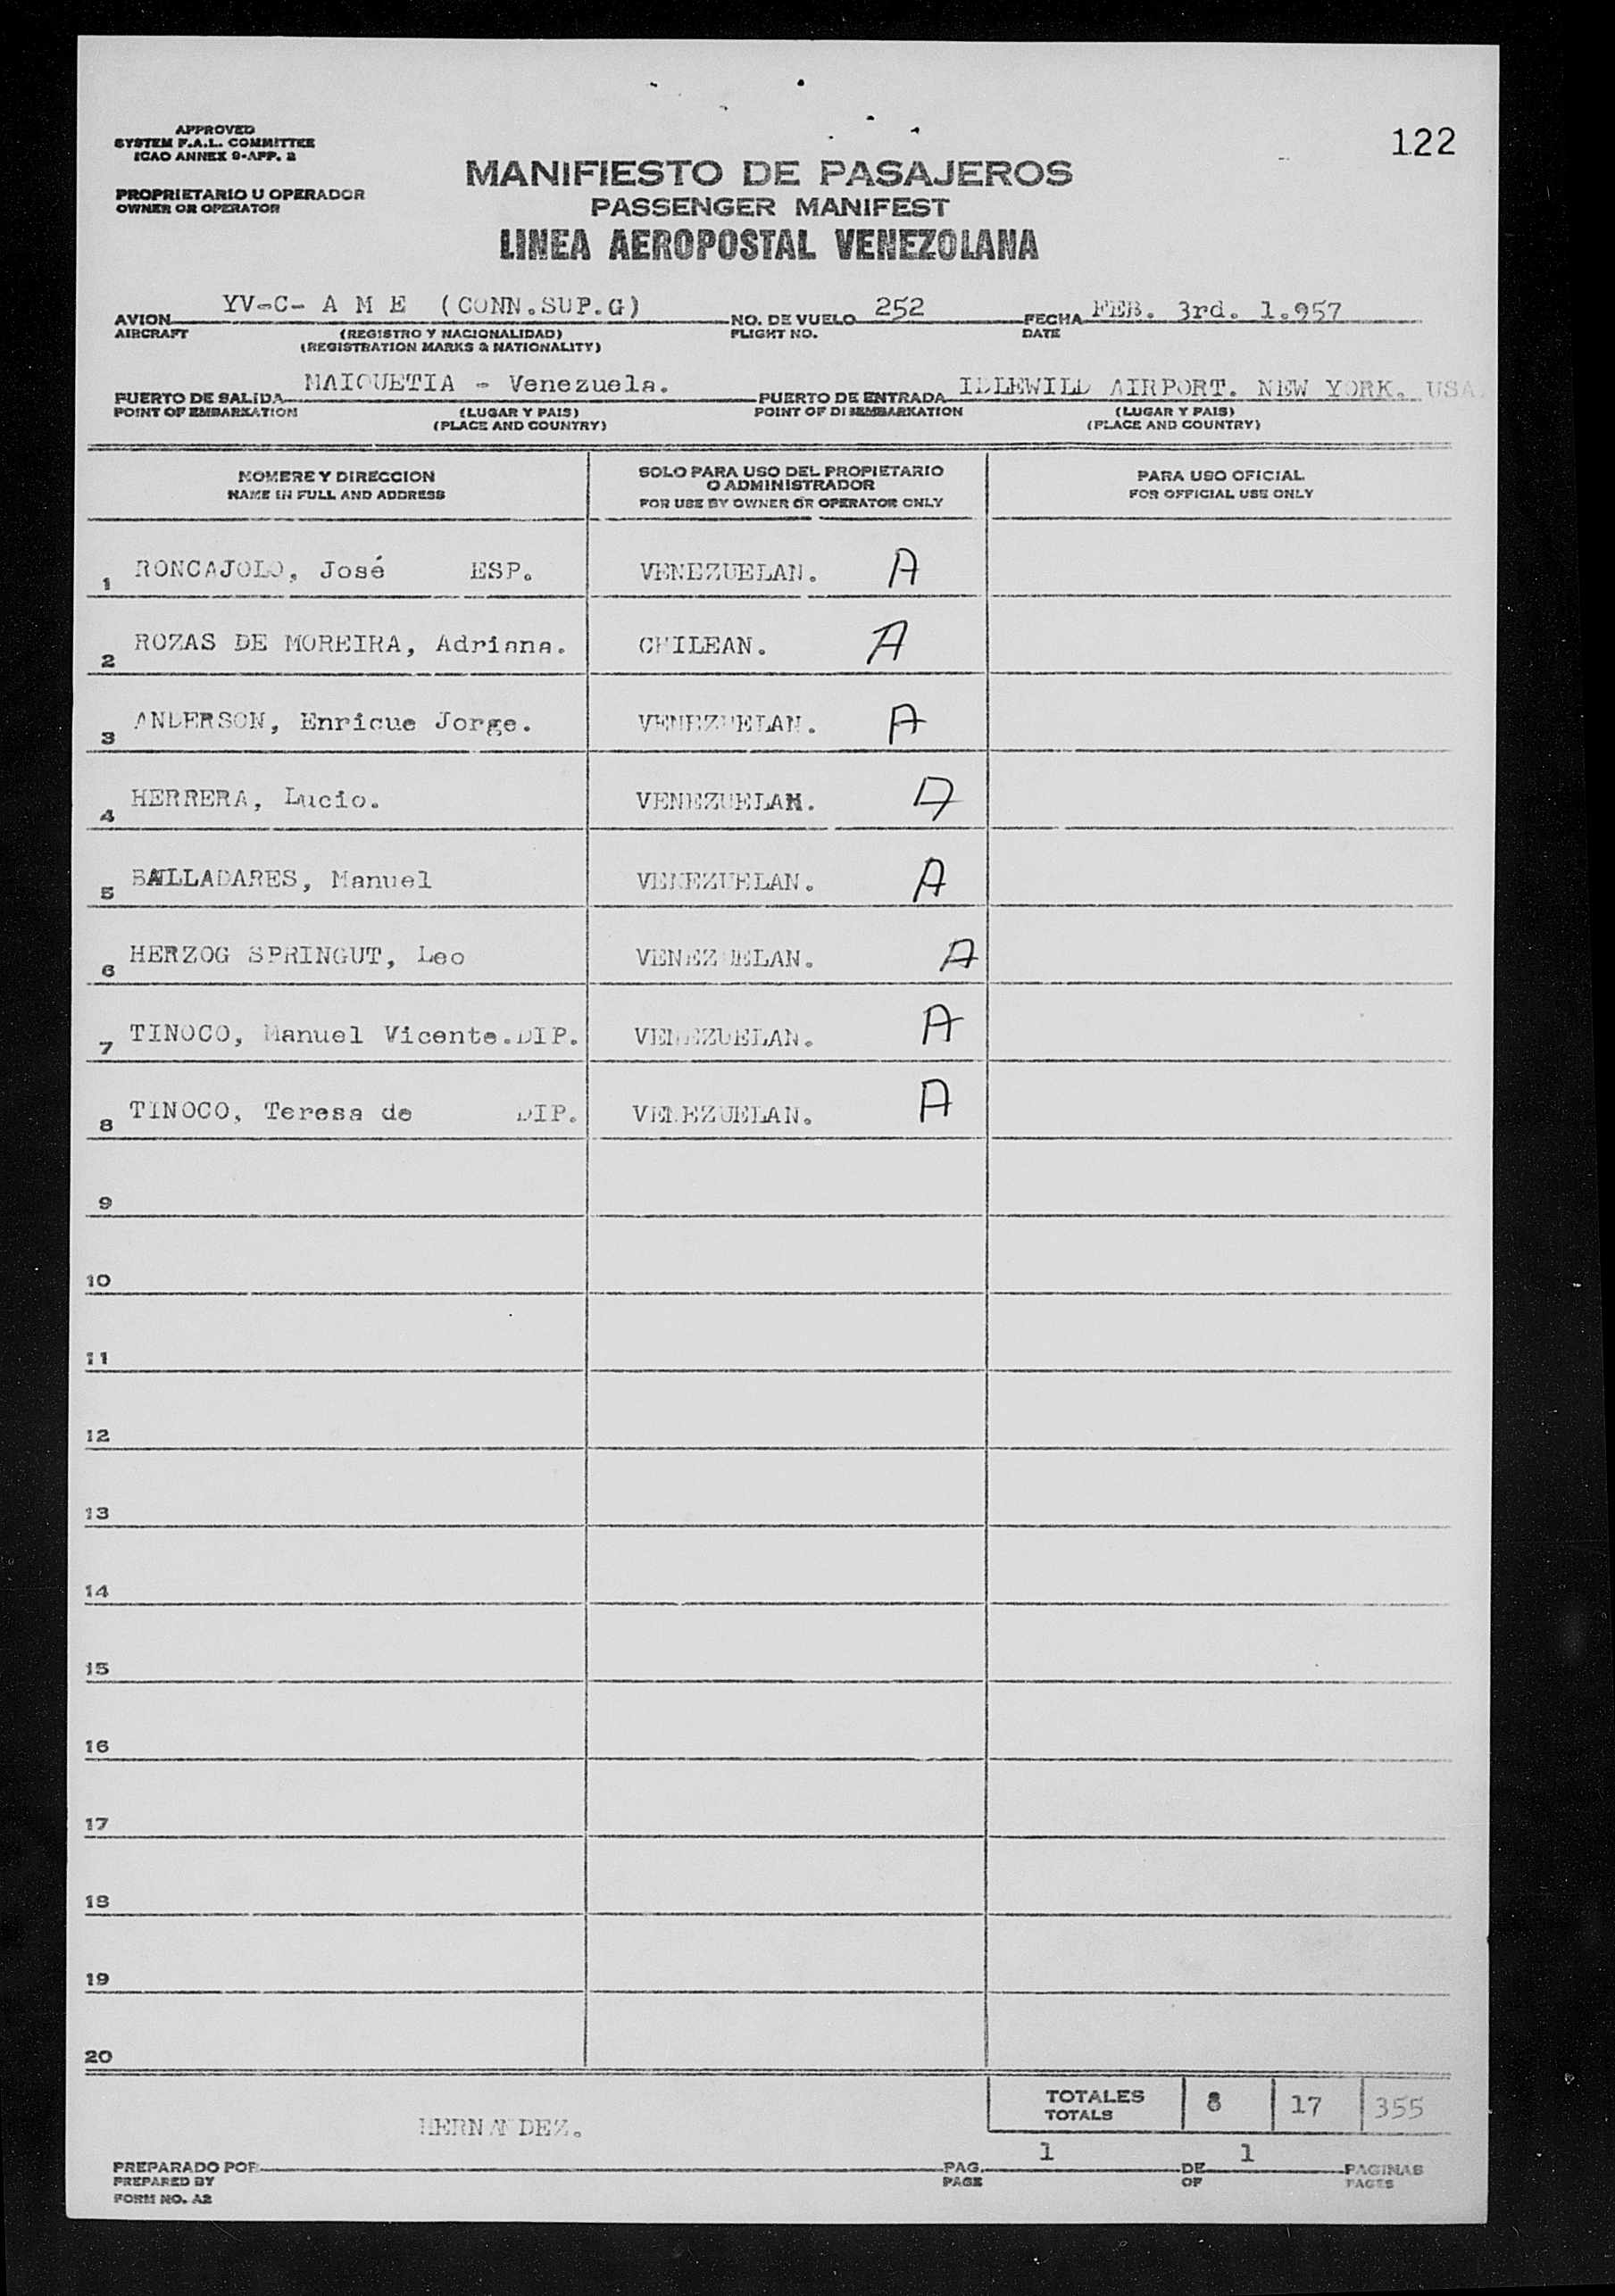 122
APPROVED
SYSTEM F.A.L. COMMITTEE
ICAO ANNEX 9-APP. 2
PROPRIETARIO U OPERADOR
OWNER OR OPERATOR
MANIFIESTO DE PASAJEROS
PASSENGER MANIFEST
LINEA AEROPOSTAL VENEZOLANA
AVION YV-C- A M E (CONN.SUP.G) NO. DE VUELO 252 FECHA FEB. 3rd. 1.957
AIRCRAFT (REGISTRO Y NACIONALIDAD) FLIGHT NO. DATE
(REGISTRATION MARKS & NATIONALITY)
PUERTO DE SALIDA MAIQUETIA - Venezuela. PUERTO DE ENTRADA IDLEWILD AIRPORT. NEW YORK. USA.
POINT OF EMBARKATION (LUGAR Y PAIS) POINT OF DISEMBARKATION (LUGAR Y PAIS)
(PLACE AND COUNTRY) (PLACE AND COUNTRY)
NOMBRE Y DIRECCION
NAME IN FULL AND ADDRESS
SOLO PARA USO DEL PROPIETARIO
O ADMINISTRADOR
FOR USE BY OWNER OR OPERATOR ONLY
PARA USO OFICIAL
FOR OFFICIAL USE ONLY
1 RONCAJOLO, José ESP. VENEZUELAN. A
2 ROZAS DE MOREIRA, Adriana. CHILEAN. A
3 ANDERSON, Enrique Jorge. VENEZUELAN. A
4 HERRERA, Lucio. VENEZUELAN. A
5 BALLADARES, Manuel VENEZUELAN. A
6 HERZOG SPRINGUT, Leo VENEZUELAN. A
7 TINOCO, Manuel Vicente.DIP. VENEZUELAN. A
8 TINOCO, Teresa de DIP. VENEZUELAN. A
9
10
11
12
13
14
15
16
17
18
19
20
TOTALES 8 17 355
TOTALS
HERNANDEZ.
PREPARADO POR PAG. 1 DE 1 PAGINAS
PREPARED BY PAGE OF PAGES
FORM NO. A2